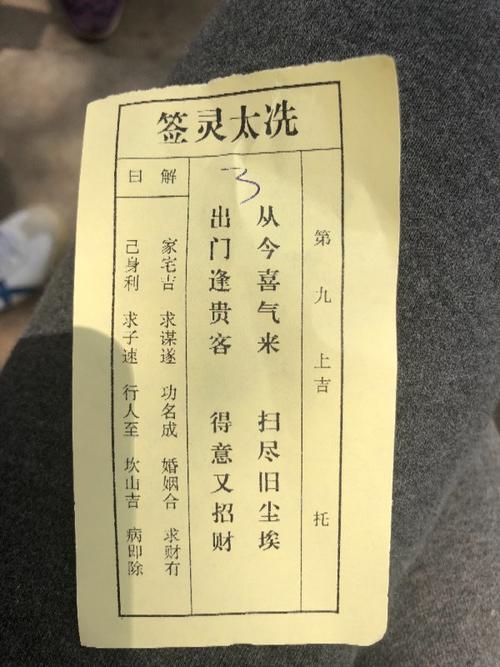 冼太灵签
第九 上吉 托
3
从今喜气来 扫尽旧尘埃
出门逢贵客 得意又招财
解曰
家宅吉 求谋遂 功名成 婚姻合 求财有
己身利 求子速 行人至 坎山吉 病即除